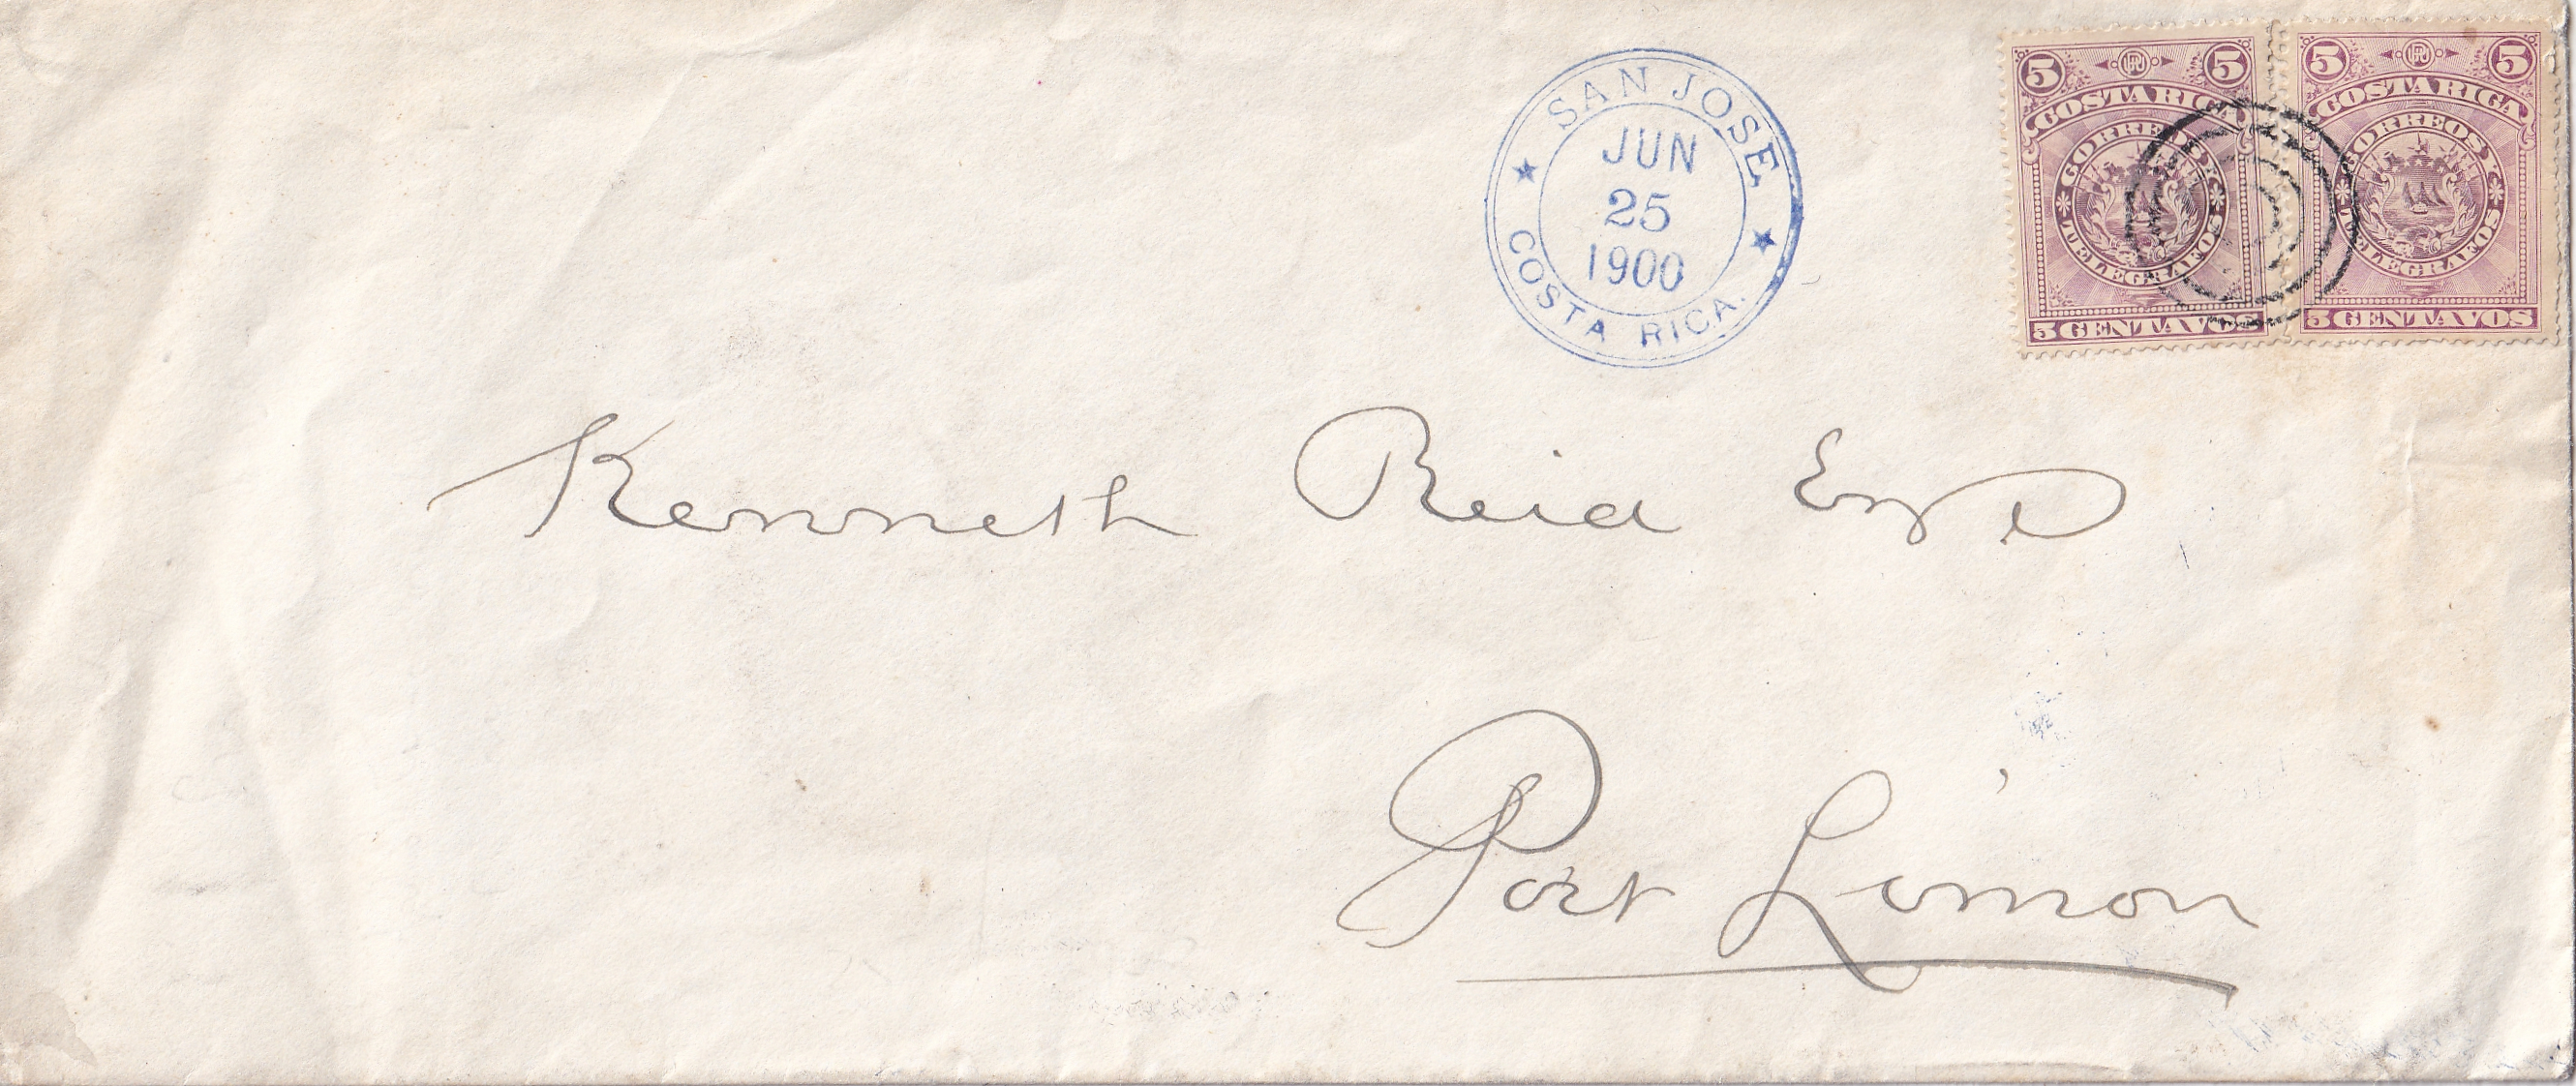 SAN JOSE
JUN
25
1900
COSTA RICA.
5 UPU 5
COSTA RICA
CORREOS
TELEGRAFOS
5 CENTAVOS
5 UPU 5
COSTA RICA
CORREOS
TELEGRAFOS
5 CENTAVOS
Kenneth Reid Esq
Port Limon